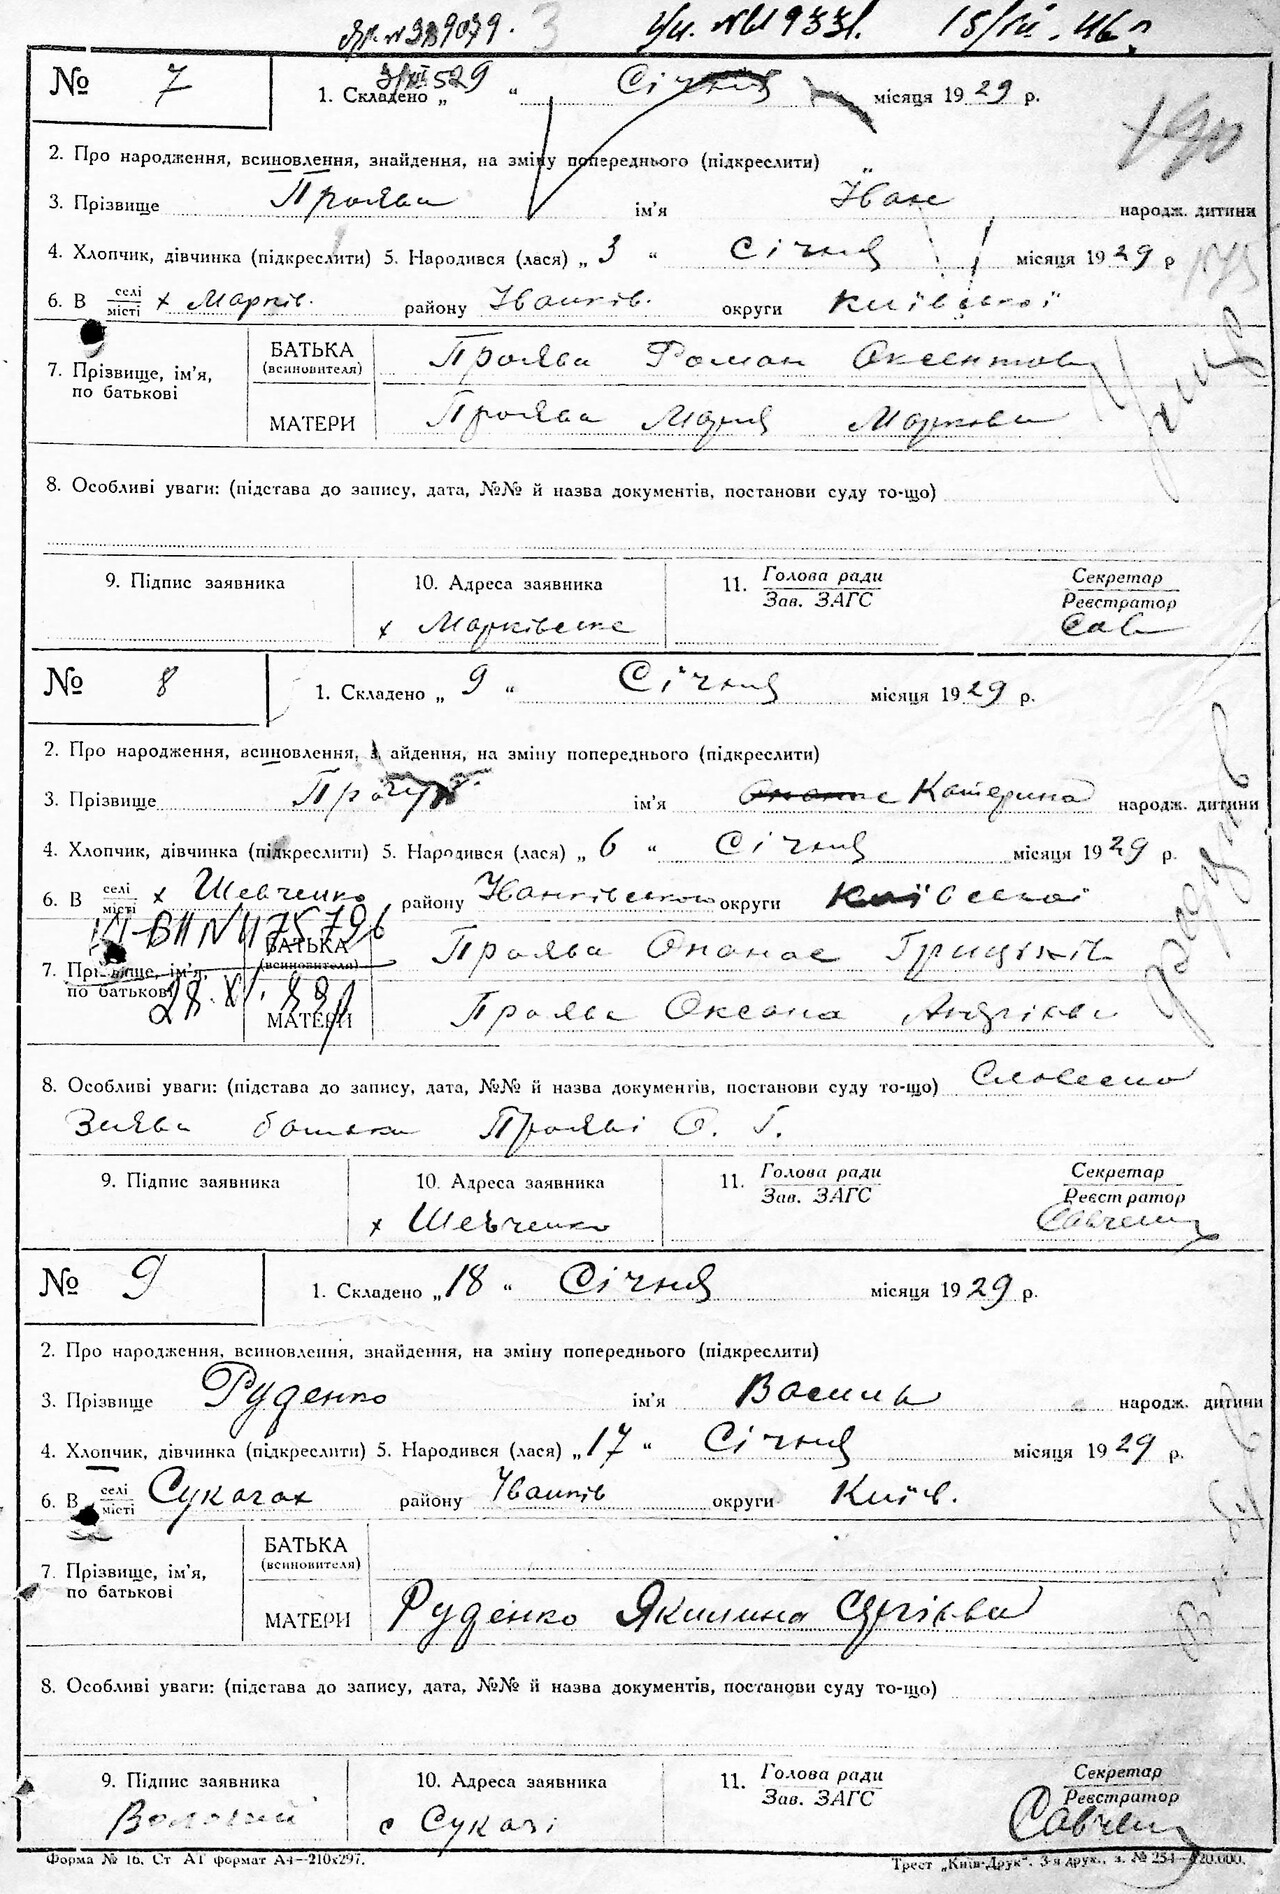 № 7
1. Складено „ “ Січня місяця 1929 р.
2. Про народження, всиновлення, знайдення, на зміну попереднього (підкреслити)
3. Прізвище Проява ім'я Іван народж. дитини
4. Хлопчик, дівчинка (підкреслити) 5. Народився (лася) „ 3 “ Січня місяця 1929 р
6. В селі/місті х Марків. району Іванків. округи Київської
7. Прізвище, ім'я, по батькові
БАТЬКА (всиновителя) Проява Роман Оксентов
МАТЕРИ Проява Мария Маркова
8. Особливі уваги: (підстава до запису, дата, №№ й назва документів, постанови суду то-що)
9. Підпис заявника 10. Адреса заявника 11. Голова ради / Зав. ЗАГС Секретар / Реєстратор
х Марківське Сав
№ 8
1. Складено „ 9 “ Січня місяця 1929 р.
2. Про народження, всиновлення, знайдення, на зміну попереднього (підкреслити)
3. Прізвище ім'я Катерина народж. дитини
4. Хлопчик, дівчинка (підкреслити) 5. Народився (лася) „ 6 “ Січня місяця 1929 р.
6. В селі/місті х Шевченко району Іванківського округи Київської
7. Прізвище, ім'я, по батькові
БАТЬКА (всиновителя) Проява Опанас Грицьків
МАТЕРИ Проява Оксана Андрієва
8. Особливі уваги: (підстава до запису, дата, №№ й назва документів, постанови суду то-що) Словесна
Заява батька Прояві О. Г.
9. Підпис заявника 10. Адреса заявника 11. Голова ради / Зав. ЗАГС Секретар / Реєстратор
х Шевченко Савчен
№ 9
1. Складено „ 18 “ Січня місяця 1929 р.
2. Про народження, всиновлення, знайдення, на зміну попереднього (підкреслити)
3. Прізвище Руденко ім'я Василь народж. дитини
4. Хлопчик, дівчинка (підкреслити) 5. Народився (лася) „ 17 “ Січня місяця 1929 р.
6. В селі/місті Сукачах району Іванків округи Київ.
7. Прізвище, ім'я, по батькові
БАТЬКА (всиновителя)
МАТЕРИ Руденко Якилина Сергієва
8. Особливі уваги: (підстава до запису, дата, №№ й назва документів, постанови суду то-що)
9. Підпис заявника 10. Адреса заявника 11. Голова ради / Зав. ЗАГС Секретар / Реєстратор
с Сукачі Савчен
Форма № 16. Ст А1 формат А4—210х297. Трест „Київ-Друк“. 3-я друк., з. № 254—120.000.